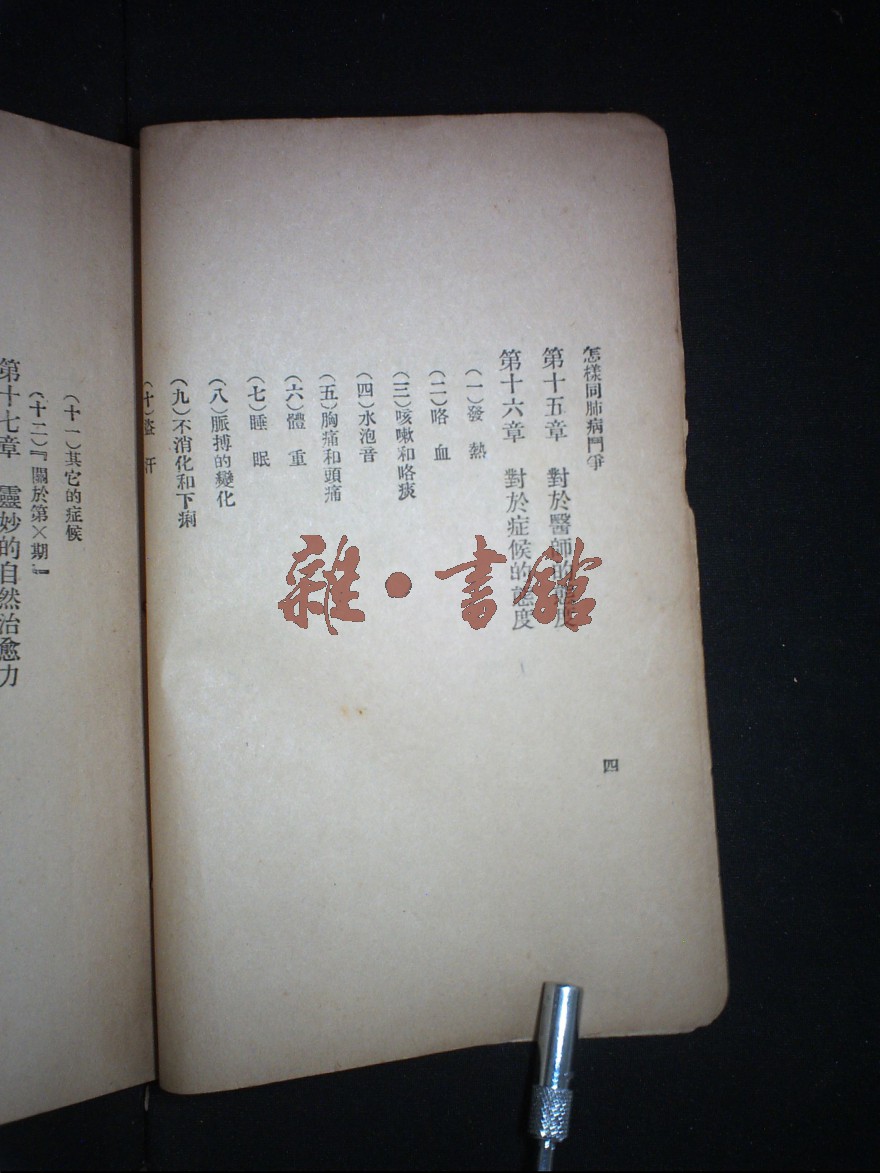 怎樣同肺病鬥爭
第十五章　對於醫師的態度
第十六章　對於症候的態度
(一)發　熱
(二)咯　血
(三)咳嗽和咯痰
(四)水泡音
(五)胸痛和頭痛
(六)體　重
(七)睡　眠
(八)脈搏的變化
(九)不消化和下痢
(十)盜　汗
四
(十一)其它的症候
(十二)『關於第×期』
第十七章　靈妙的自然治癒力
雜·書館